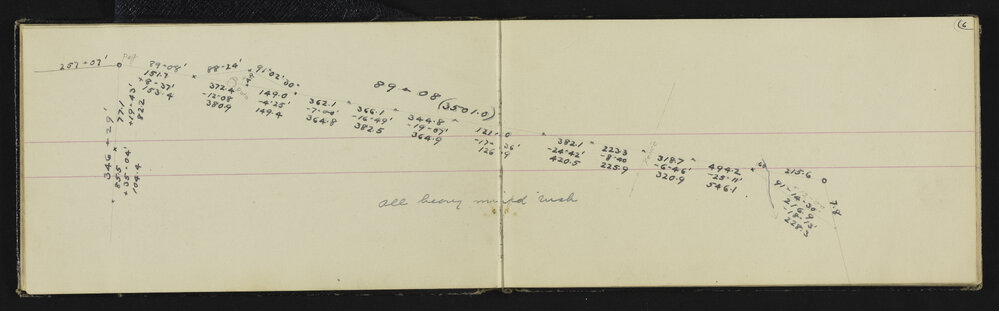 257-07'
Peg
89-08'
151.7
+8-37'
153.4
88-24'
372.4
-12-08
380.9
91°02'30"
149.0
-4-25'
149.4
89-08
(3501.0)
362.1
364.8
366.1
-16-49'
382.5
344.8
-19-07'
364.9
382.1
-24-42'
420.5
223.3
-8-40
225.9
318.7
-6-46'
320.9
494.2
-25-11'
546.1
215.6
91-14-30
216.9
-18-13'
228.3
7.8
346-29'
77.1
+19-43'
822
85.5
+35-04'
104.4
all heavy mixed bush